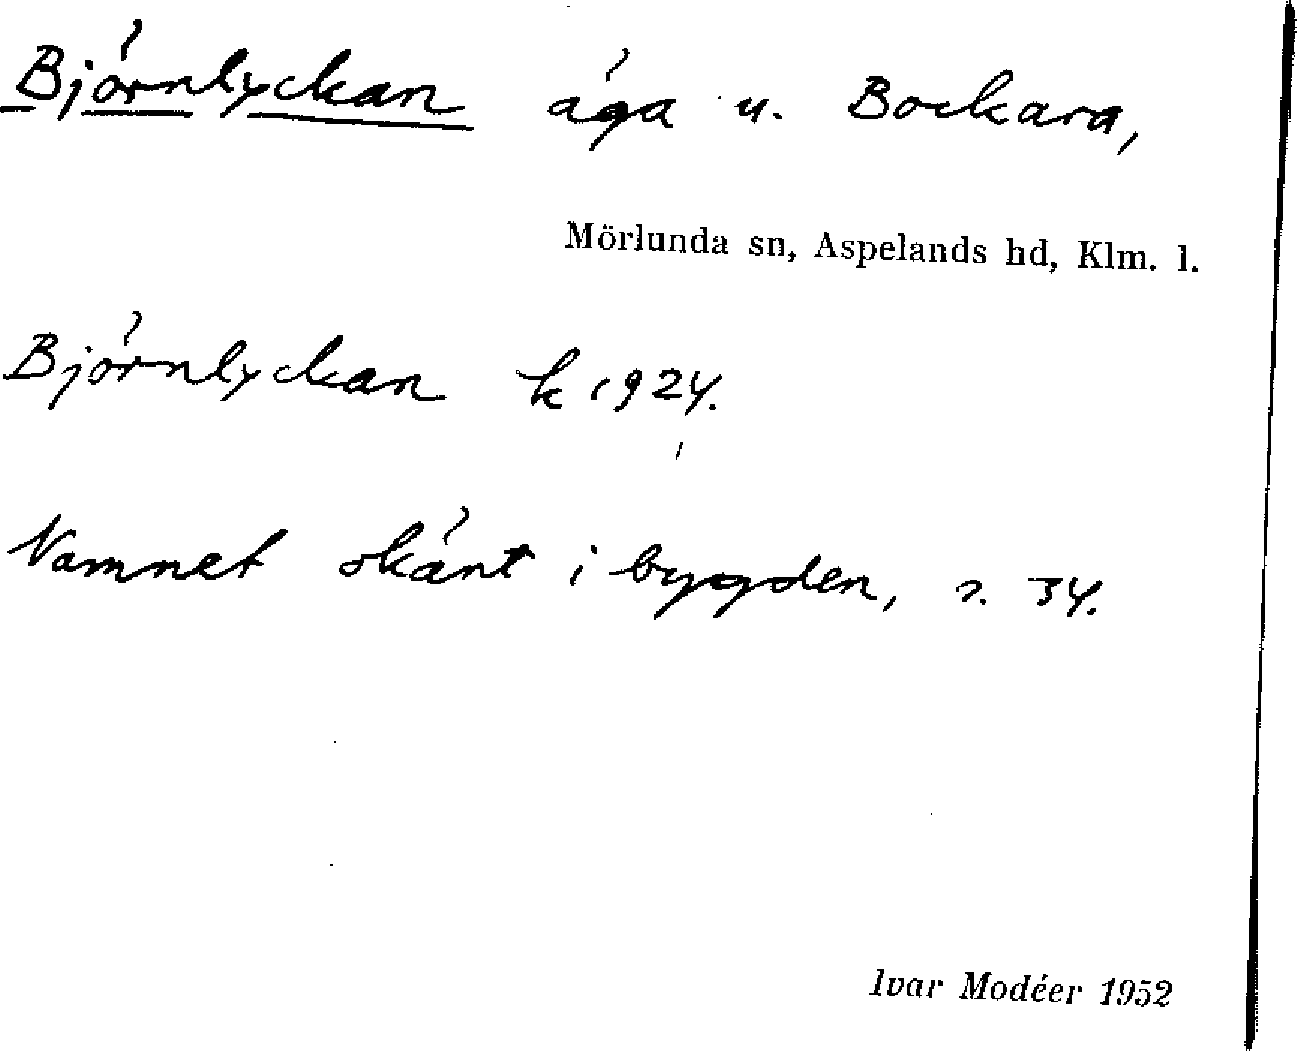 Björnlyckan äga u. Bockara,
Mörlunda sn, Aspelands hd, Klm. l.
Björnlyckan k 1924.
Namnet okänt i bygden, s. 34.
Ivar Modéer 1952